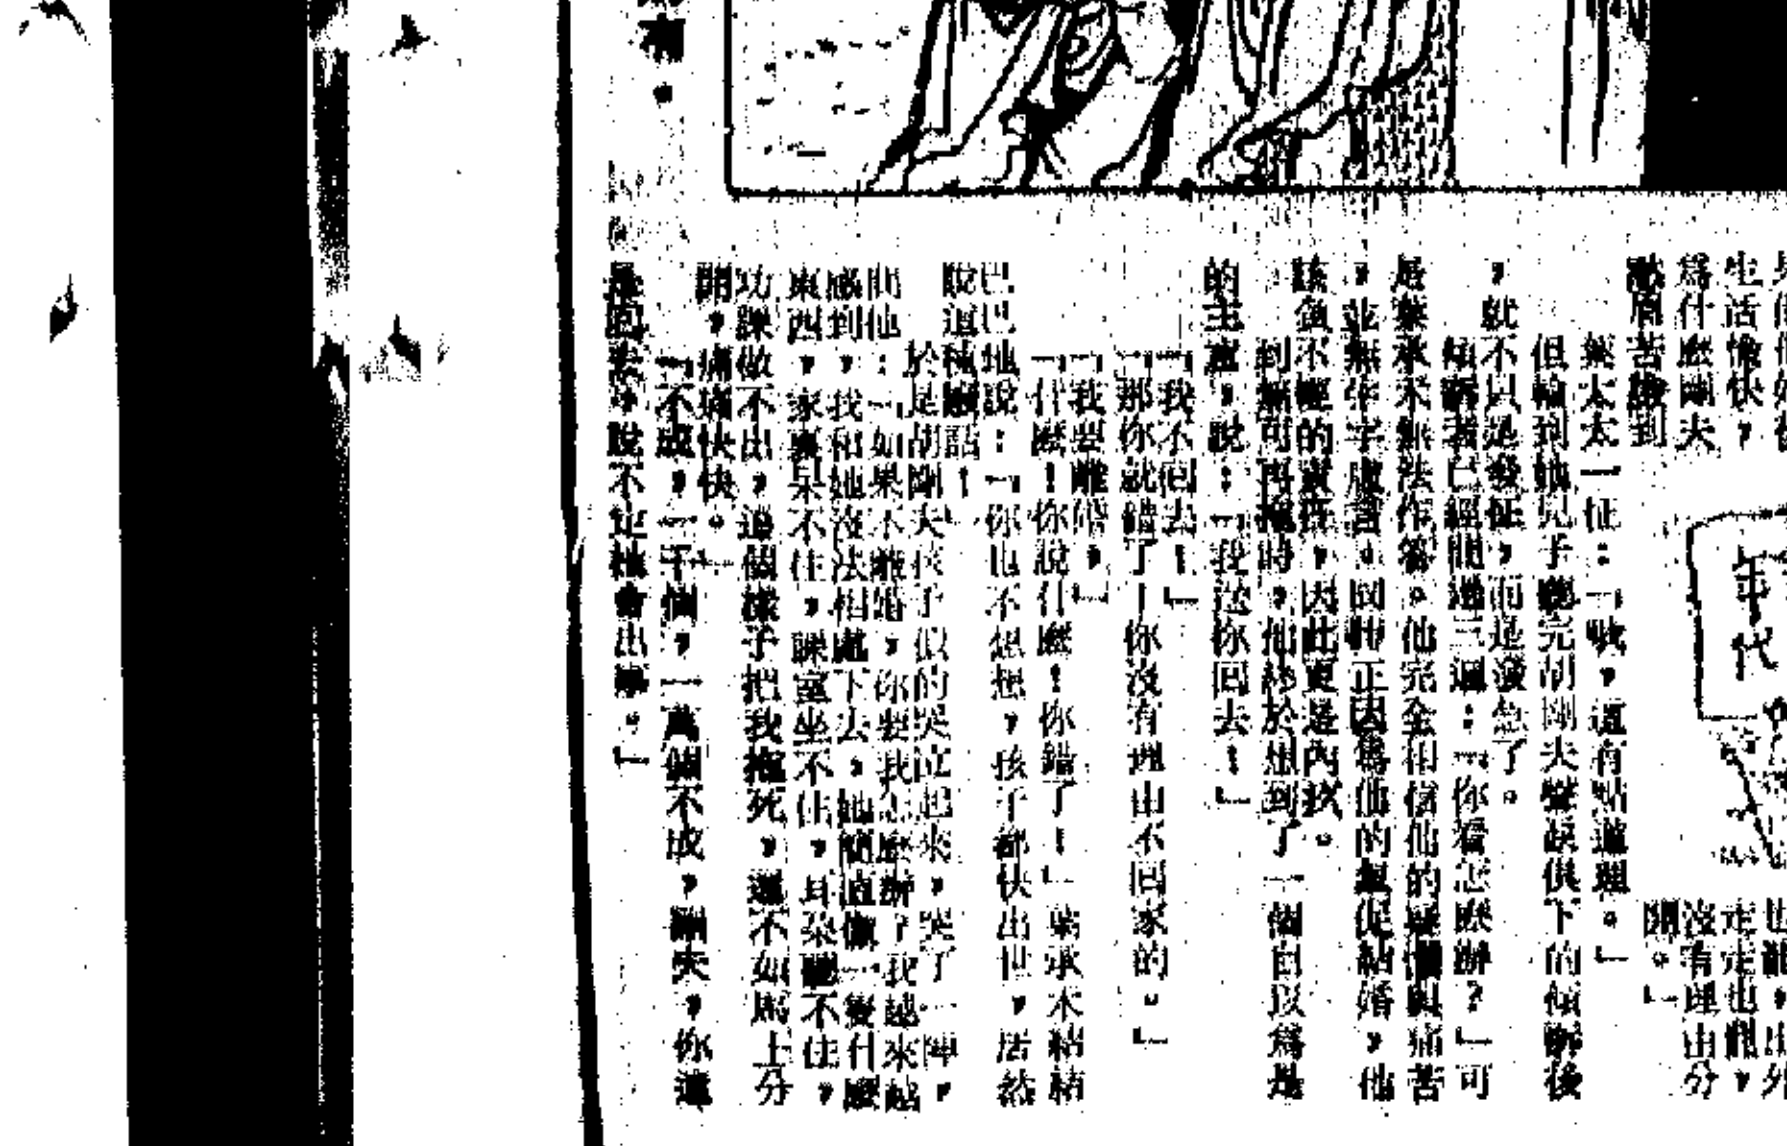 生活愉快，
爲什麼剛夫
愁眉苦臉到
年
代
也能，出外
走走也能，
沒有理由分
開。」
葉太太一怔：「哦，這有點道理。」
但輪到她兒子聽完胡剛夫聲淚俱下的傾訴後
，就不只是發怔，而是發急了。
傾訴者已經問過三遍：「你看怎麼辦？」可
是葉承木無法作答。他完全相信他的疑懼與痛苦
，並無半字虛言。同時正因爲他的
結婚，他
該負不輕的責任，因此更是內疚。
到無可再拖時，他終於想到了一個自以爲是
的主意，說：「我送你回去！」
「我不回去！」
「那你就錯了！你沒有理由不回家的。」
「我要離婚，」
「什麼！你說什麼！你錯了！」葉承木結結
巴巴地說：「你也不想想，孩子都快出世，居然
說這種話！」
於是胡剛夫孩子似的哭泣起來，哭了一陣，
問他：「如果不離婚，你要我怎麼辦？我越來越
感到，我和她沒法相處下去，她簡直像一隻什麼
東西，家裏呆不住，課室坐不住，耳朶聽不住，
功課做不出，這個樣子把我拖死，還不如馬上分
開，痛痛快快。」
「不成，一千個，一萬個不成，剛夫，你還
是回去，說不定她會出事。」